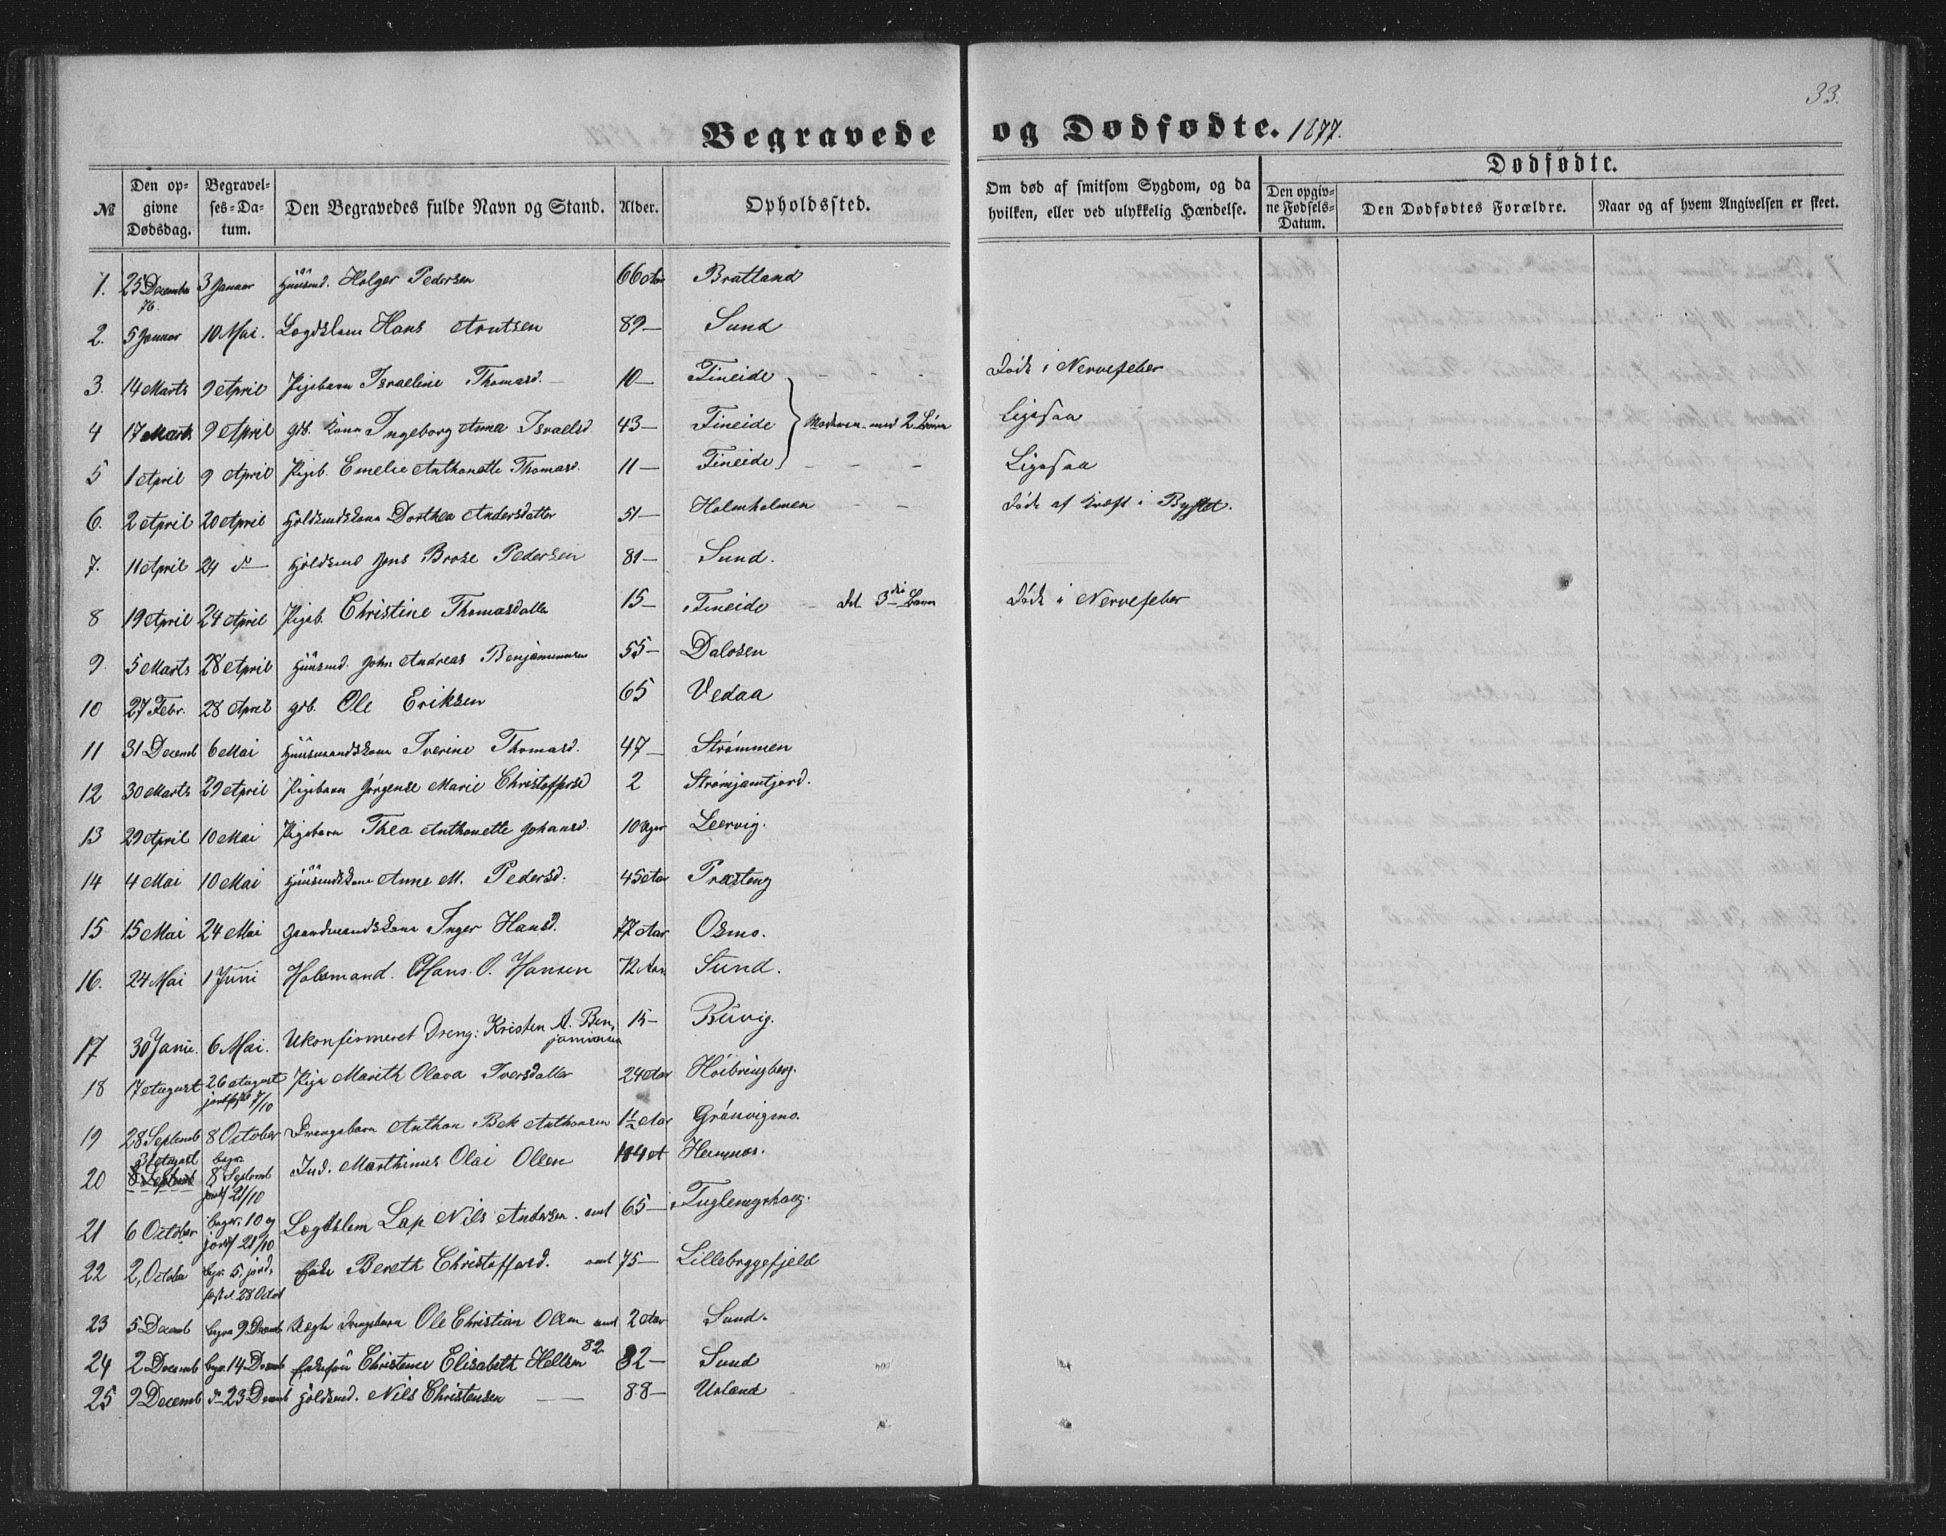 33.
Begravede og Dødfødte. 1877.
Dødfødte.
№ Den opgivne Dødsdag. Begravelses-Datum. Den Begravedes fulde Navn og Stand. Alder. Opholdssted. Om død af smitsom Sygdom, og da hvilken, eller ved ulykkelig Hændelse. Den opgivne Fødsels-Datum. Den Dødfødtes Forældre. Naar og af hvem Angivelsen er skeet.
1. 25 Decembr 76 3 Januar Huusmd. Holger Pedersen 66 Aar Bratland
2. 5 Januar 10 Mai. Lægdslem Hans Arntsen 89 — Sund
3. 14 Marts 9 April Pigebarn Israeline Thomasd. — 10 — Fineide - - - Døde i Nervefeber
4 17 Marts 9 April gdb. kona Ingeborg Anna Israelsd 43 — Fineide Moderen med 2 Børn Ligesaa
5 1 April 9 April Pigeb. Emelie Anthonette Thomasd. 11 — Fineide - - - Ligesaa
6. 2 April 20 April Dorthea Andersdatter 51 — Holmholmen - - Døde af Kræft i Bystet.
7. 11 April 24 d — Jens Broze Pedersen 81 — Sund.
8 19 April 24 April Pigeb. Christine Thomasdatter 15 — Fineide - det 3die Barn Døde i Nervefeber
9. 5 Marts 28 April Huusmd. John Andreas Benjaminsen 55 — Dalosen
10 27 Febr. 28 April gdb. Ole Eriksen 65 Vedaa
11 31 Decemb 6 Mai Huusmandskone Iverine Thomasd. 47 — Strømmen
12 30 Marts 29 April Pigebarn Jørgense Marie Christoffersd 2
13 29 April 10 Mai Pigebarn Thea Anthonette Johansd. 10 Uger Leervig.
14 4 Mai 10 Mai Huusmdskone Anne M. Pedersd. 45 Aar Præsteng
15 15 Mai 24 Mai Gaardmandskone Inger Hansd. 77 Aar Osmo.
16. 24 Mai 1 Juni Hans. O. Hansen 72 Aar. Sund.
17 30 Janu. 6 Mai. Ukonfirmeret Dreng: Kristen A. Benjaminsen 15 —
18 17 August 26 August jordfæst 7/10 Pige Marith Olava Iversdatter 24 Aar
19 28 Septemb 8 October Drengebarn Anthon Bek Anthonsen 1½ Aar Grønvigmo.
20 31 August 8 Septemb begr. 8 Septemb jordf 21/10 Ind. Marthinus Olai Olsen Hemnes.
21 6 October begr. 10 og jordf 21/10 Lægdslem Lap Nils Andersen. amt 65 —
22 2, October begr. 5, jordfæstet 28 Octob Enke Bereth Christoffersd. amt 75 — Lillebyggefjeld
23 5 Decemb begr 9 Decemb Uægte Drengebarn Ole Christian Olsen amt 2 Aar Sund.
24 2 Decemb begr 14 Decemb Christense Elisabeth Heltzen 82 82 — Sund
25 9 Decemb d — 23 Decemb Nils Christensen — 88 — Urland